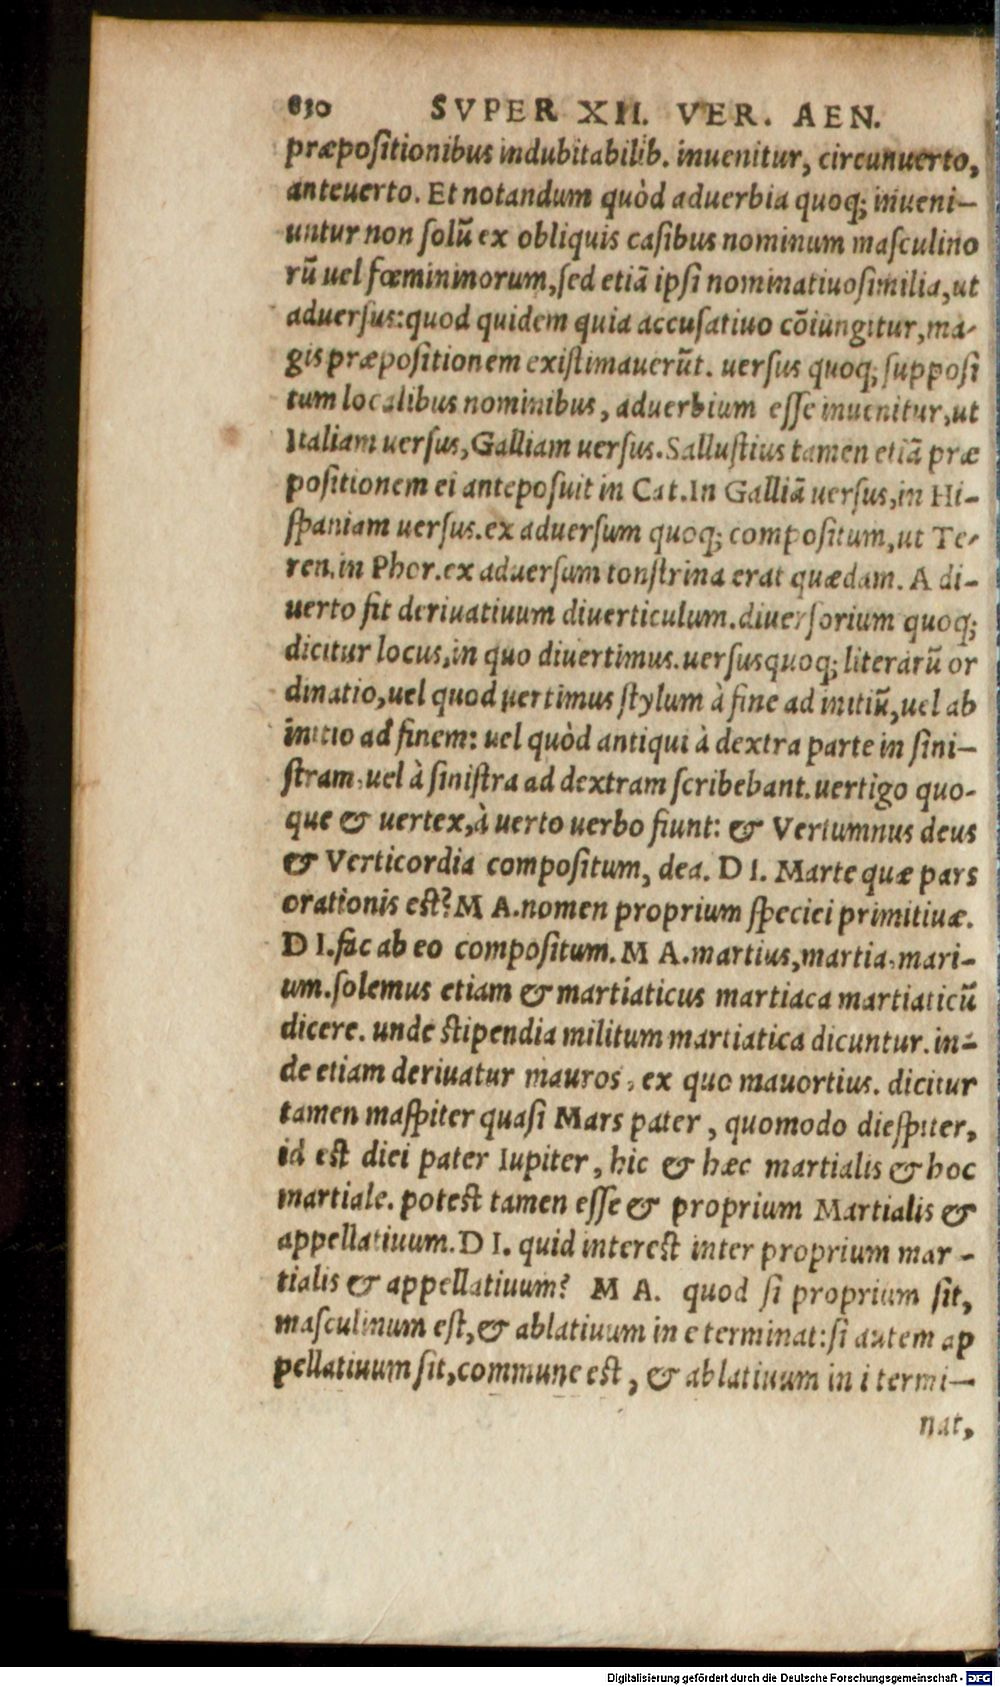 830 SVPER XII. VER. AEN.
præpoſitionibus indubitabilib. inuenitur, circunuerto,
anteuerto. Et notandum quòd aduerbia quoq; inueni-
untur non ſolũ ex obliquis caſibus nominum maſculino
rũ uel fœmininorum, ſed etiã ipſi nominatiuo ſimilia, ut
aduerſus: quod quidem quia accuſatiuo cõiungitur, ma-
gis præpoſitionem exiſtimauerũt. uerſus quoq; ſuppoſi
tum localibus nominibus, aduerbium eſſe inuenitur, ut
Italiam uerſus, Galliam uerſus. Salluſtius tamen etiã præ
poſitionem ei antepoſuit in Cat. In Galliã uerſus, in Hi-
ſpaniam uerſus. ex aduerſum quoq; compoſitum, ut Te-
ren. in Phor. ex aduerſum tonſtrina erat quædam. A di-
uerto fit deriuatiuum diuerticulum. diuerſorium quoq;
dicitur locus, in quo diuertimus. uerſus quoq; literarũ or
dinatio, uel quod uertimus ſtylum à fine ad initiũ, uel ab
initio ad finem: uel quòd antiqui à dextra parte in ſini-
ſtram, uel à ſiniſtra ad dextram ſcribebant. uertigo quo-
que & uertex, à uerto uerbo fiunt: & Vertumnus deus
& Verticordia compoſitum, dea. D I. Marte quæ pars
orationis eſt? M A. nomen proprium ſpeciei primitiuæ.
D I. fac ab eo compoſitum. M A. martius, martia, mari-
um. ſolemus etiam & martiaticus martiaca martiaticũ
dicere. unde ſtipendia militum martiatica dicuntur. in-
de etiam deriuatur mauros, ex quo mauortius. dicitur
tamen maſpiter quaſi Mars pater, quomodo dieſpiter,
id eſt diei pater Iupiter, hic & hæc martialis & hoc
martiale. poteſt tamen eſſe & proprium Martialis &
appellatiuum. D I. quid intereſt inter proprium mar-
tialis & appellatiuum? M A. quod ſi proprium ſit,
maſculinum eſt, & ablatiuum in e terminat: ſi autem ap
pellatiuum ſit, commune eſt, & ablatiuum in i termi-
nat,
Digitalisierung gefördert durch die Deutsche Forschungsgemeinschaft - DFG